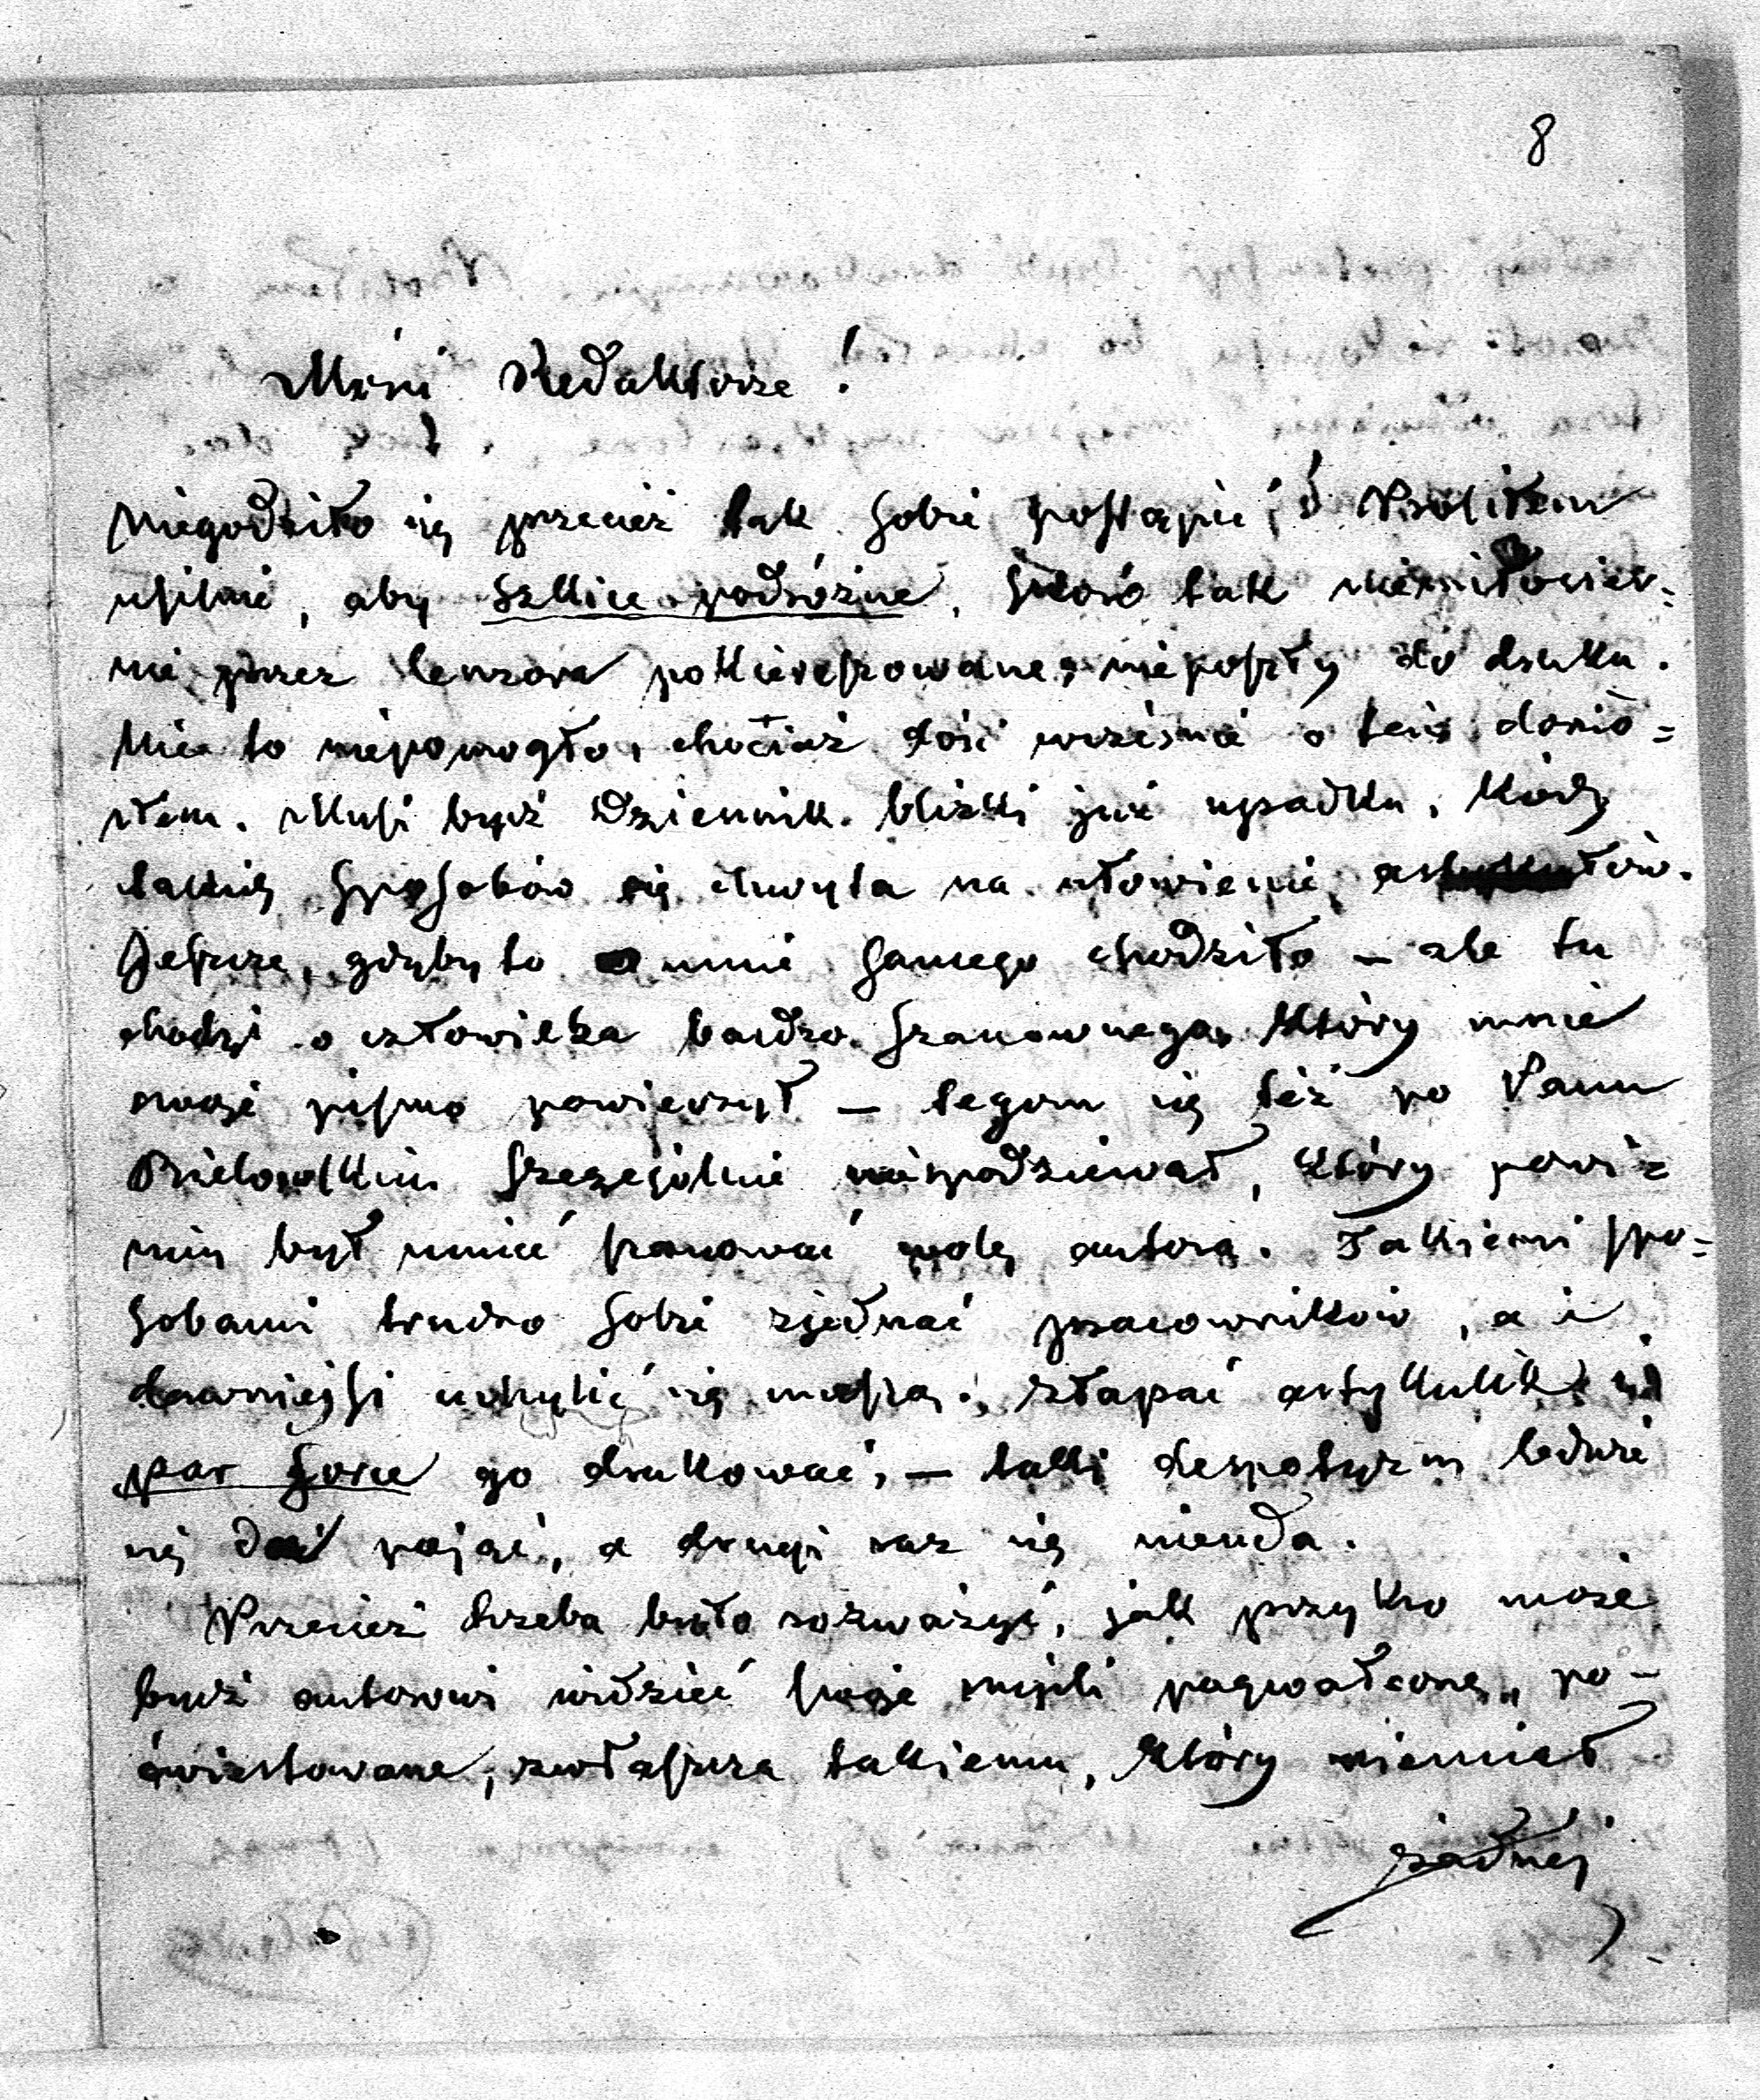 8
Mości Redaktorze!
Niegodziło się przecież tak sobie postąpić, Prosiłem
usilnie, aby Szkice podróżne, skoro tak niemiłosier=
nie przez Cenzora pokiereszowane, nieposzły do druku.
Nic to niepomogło, chociaż dość wcześnie o tem donio=
słem. Musi być Dziennik blizki już upadku, kiedy
takich sposobów się chwyta na ułowienie artykułów.
Jeszcze, gdyby to o mnie samego chodziło — ale tu
chodzi o człowieka bardzo szanownego, który mnie
swoje pismo powierzył — tegom się też po Panu
Bielowskim szczególnie niespodziewał, który powi=
nien był umieć szanować wolę autora. Takiemi spo=
sobami trudno sobie zjednać pracowników, a i
dawniejsi uchylić się muszą. Złapać artykulik i
par force go drukować, — taki despotyzm ledwie
się da pojąć, a drugi raz się nieuda.
Przecież trzeba było rozważyć, jak przykro może
być autorowi widzieć swoje myśli pogwałcone, po-
ćwiartowane, zwłaszcza takiemu, który niemiał
żadnej